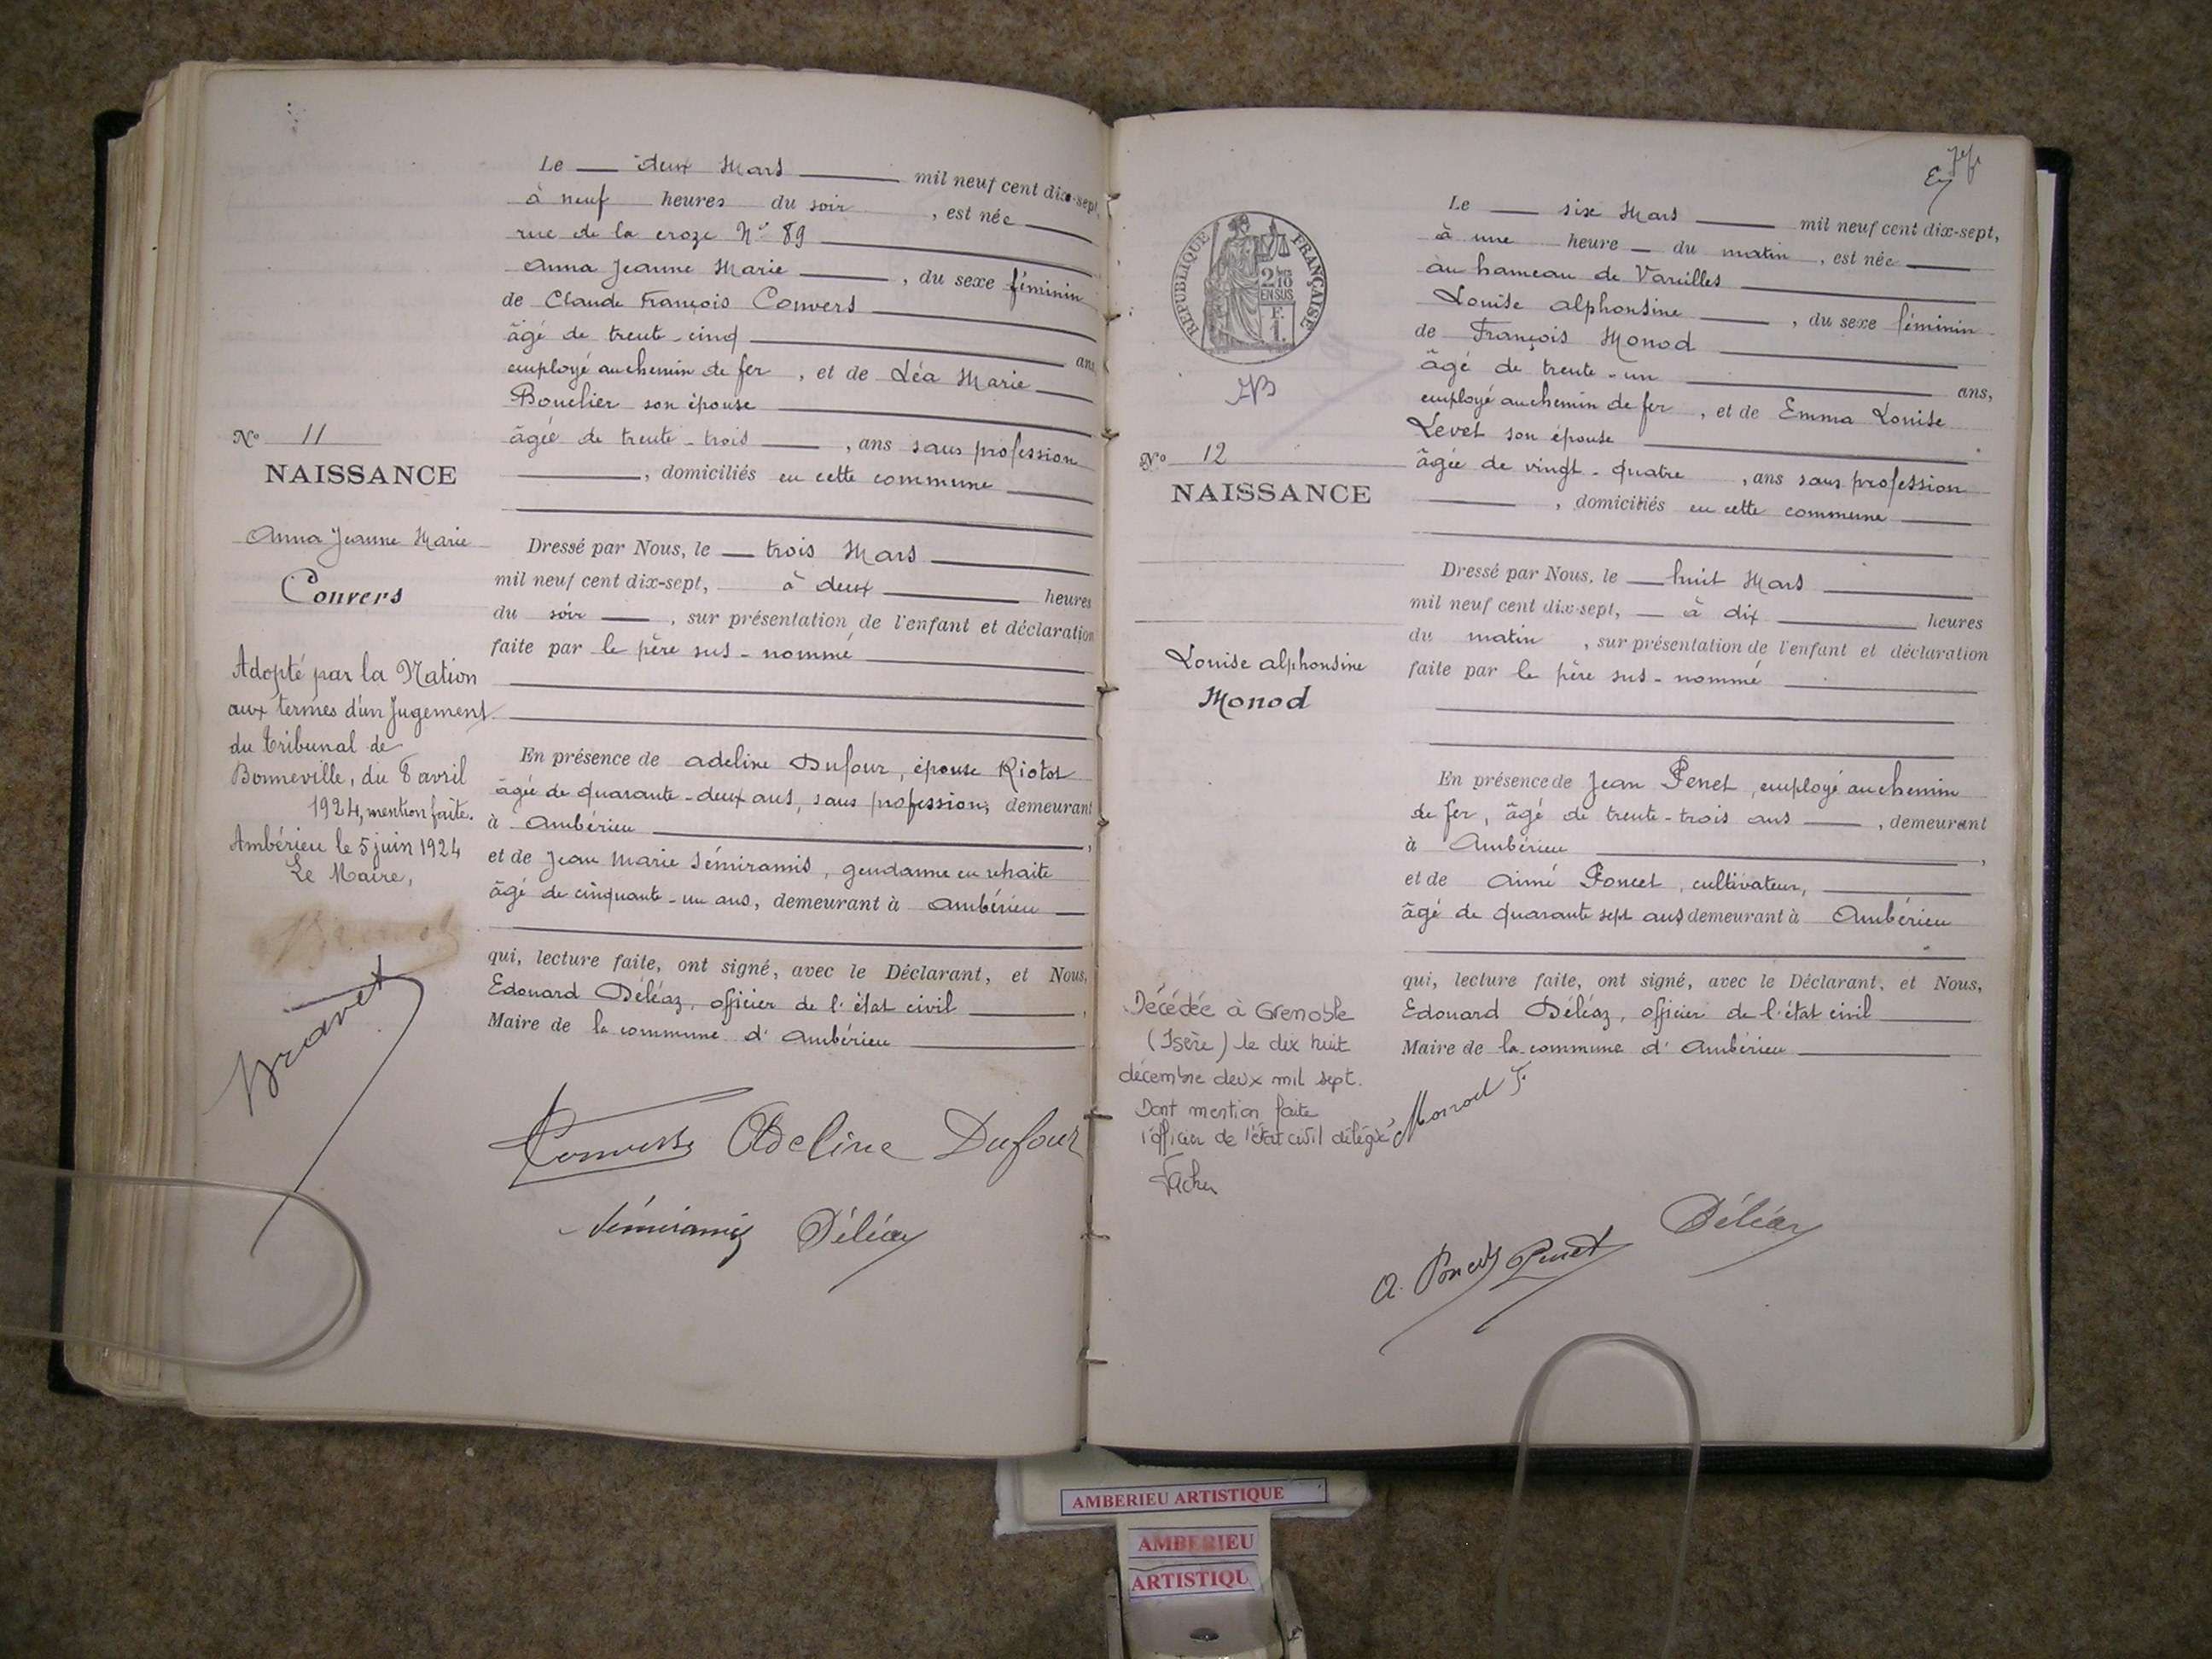 Le deux Mars mil neuf cent dix-sept,
à neuf heures du soir, est née
rue de la croze N° 89
Anna Jeanne Marie, du sexe féminin
de Claude François Convers
âgé de trente-cinq ans,
employé au chemin de fer, et de Léa Marie
Bouclier son épouse
âgée de trente-trois, ans sans profession
, domiciliés en cette commune
N° 11
NAISSANCE
Anna Jeanne Marie
Convers
Dressé par Nous, le trois Mars
mil neuf cent dix-sept, à deux heures
du soir, sur présentation de l'enfant et déclaration
faite par le père sus-nommé
Adopté par la Nation
aux termes d'un Jugement
du tribunal de
Bonneville, du 8 avril
1924, mention faite.
Ambérieu le 5 juin 1924
Le Maire,
Bravet
En présence de Adeline Dufour, épouse Riotot
âgée de quarante-deux ans, sans profession, demeurant
à Ambérieu,
et de Jean Marie Sémiramis, gendarme en retraite
âgé de cinquante-un ans, demeurant à Ambérieu
qui, lecture faite, ont signé, avec le Déclarant, et Nous,
Edouard Déléaz, officier de l'état civil,
Maire de la commune d'Ambérieu
Convers Adeline Dufour
Sémiramis Déléaz
RÉPUBLIQUE FRANÇAISE
2/10
EN SUS
F.
1.
N° 12
NAISSANCE
Louise Alphonsine
Monod
Le six Mars mil neuf cent dix-sept,
à une heure du matin, est née
au hameau de Vareilles
Louise Alphonsine, du sexe féminin
de François Monod
âgé de trente-un ans,
employé au chemin de fer, et de Emma Louise
Levet son épouse
âgée de vingt-quatre, ans sans profession
, domiciliés en cette commune
Dressé par Nous, le huit Mars
mil neuf cent dix-sept, à dix heures
du matin, sur présentation de l'enfant et déclaration
faite par le père sus-nommé
En présence de Jean Penet, employé au chemin
de fer, âgé de trente-trois ans, demeurant
à Ambérieu,
et de Aimé Poncet, cultivateur,
âgé de quarante sept ans demeurant à Ambérieu
qui, lecture faite, ont signé, avec le Déclarant, et Nous,
Edouard Déléaz, officier de l'état civil
Maire de la commune d'Ambérieu
Décédée à Grenoble
(Isère) le dix huit
décembre deux mil sept.
Dont mention faite
l'officier de l'état civil délégué
Monod F.
A. Poncet Penet Déléaz
AMBERIEU ARTISTIQUE
AMBERIEU
ARTISTIQU